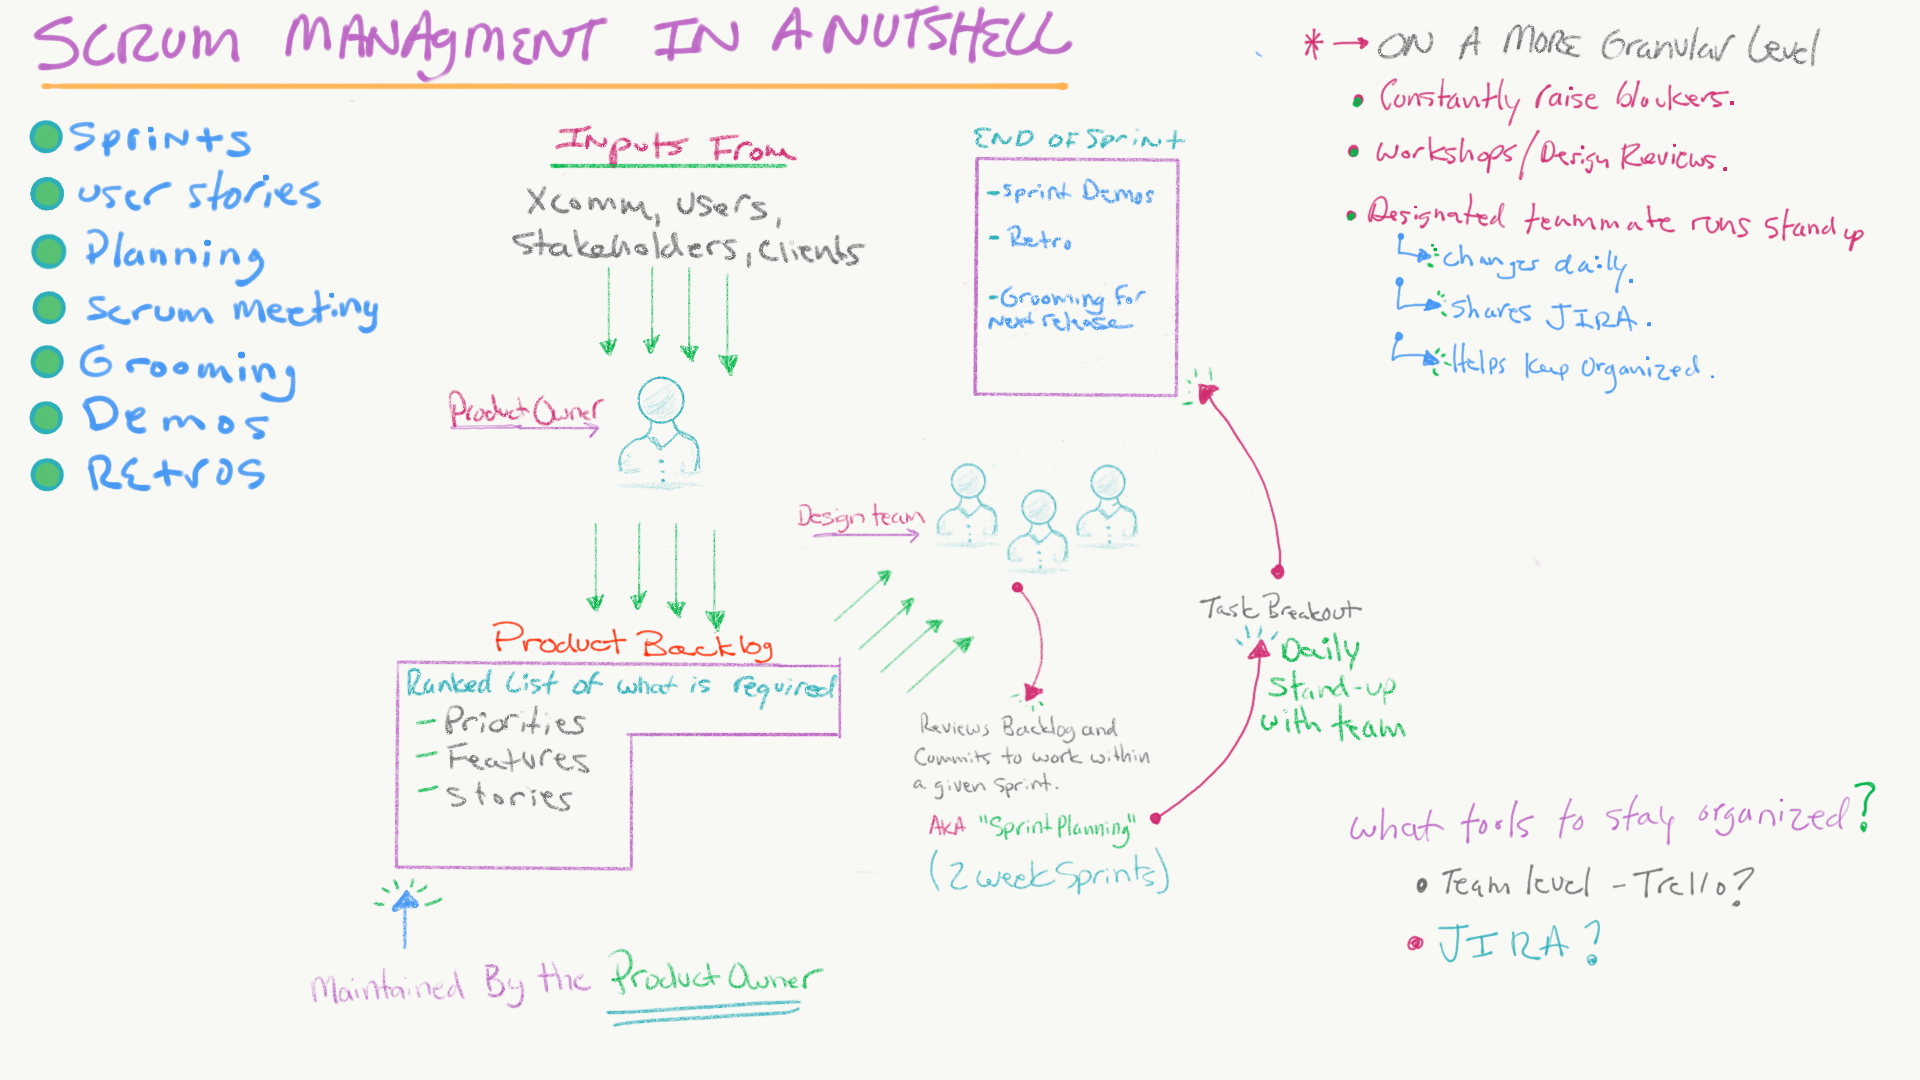 SCRUM MANAGMENT IN A NUTSHELL
Sprints
user stories
Planning
Scrum meeting
Grooming
Demos
RETROS
Inputs From
Xcomm, users,
Stakeholders, Clients
Product Owner
Product Backlog
Ranked List of what is required
- Priorities
- Features
- Stories
Maintained By the Product Owner
Design team
Reviews Backlog and
Commits to work within
a given Sprint.
AKA "Sprint Planning"
(2 week Sprints)
Task Breakout
Daily
Stand-up
with team
END OF Sprint
- Sprint Demos
- Retro
- Grooming For
Next release
* → ON A MORE Granular Level
• Constantly raise blockers.
• Workshops/Design Reviews.
• Designated teammate runs stand up
Changes daily.
Shares JIRA.
Helps keep organized.
What tools to stay organized?
• Team level - Trello?
• JIRA?